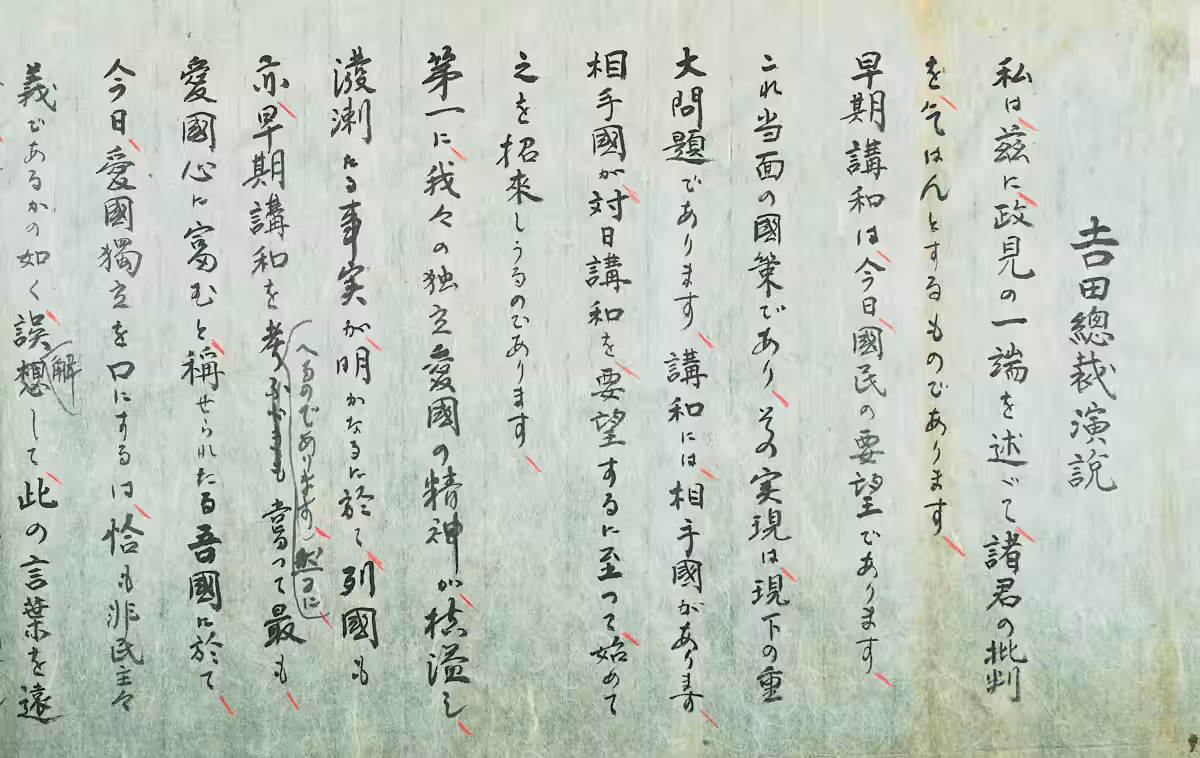 吉田總裁演説
私は茲に政見の一端を述べて諸君の批判
を乞はんとするものであります
早期講和は今日國民の要望であります
これ当面の國策であり其の実現は現下の重
大問題であります講和には相手國があります
相手國が対日講和を要望するに至つて始めて
之を招来しうるのであります
第一に我々の独立愛國の精神が横溢し
溌溂たる事実が明かなるに於て列國も
亦早期講和を考
へるのであります然るに
當つて最も
愛國心に富むと稱せられたる吾國に於て
今日愛國獨立を口にするは恰も非民主々
義であるかの如く誤想して此の言葉を遠
解